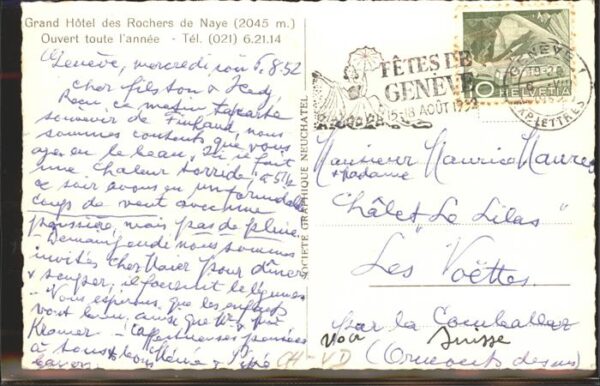 Grand Hôtel des Rochers de Naye (2045 m.)
Ouvert toute l'année - Tél. (021) 6.21.14
Genève, mercredi soir 6.8.52
Cher filston &
Reçu ce matin ta carte
souvenir de nous
sommes contents que vous
ayez eu le beau. Ici il fait
une chaleur torride, à 5 1/2
ce soir avons eu un formidable
coup de vent avec une
poussière, mais pas de pluie
Demain jeudi nous sommes
invités chez Maier pour dîner
& souper, il fournit le légumes
Nous espérons que les enfants
vont bien, ainsi que
Kramer - affectueuses pensées
à tous & bons
SOCIÉTÉ GRAPHIQUE NEUCHATEL
FÊTES DE
GENÈVE
AOÛT 1952
GENÈVE 1
EXP. LETTRES
10 HELVETIA
Monsieur Maurice
& Madame
Châlet "Le Lilas"
Les Voëttes
par la Comballaz
Suisse
(Ormonts dessus)
CH-VD